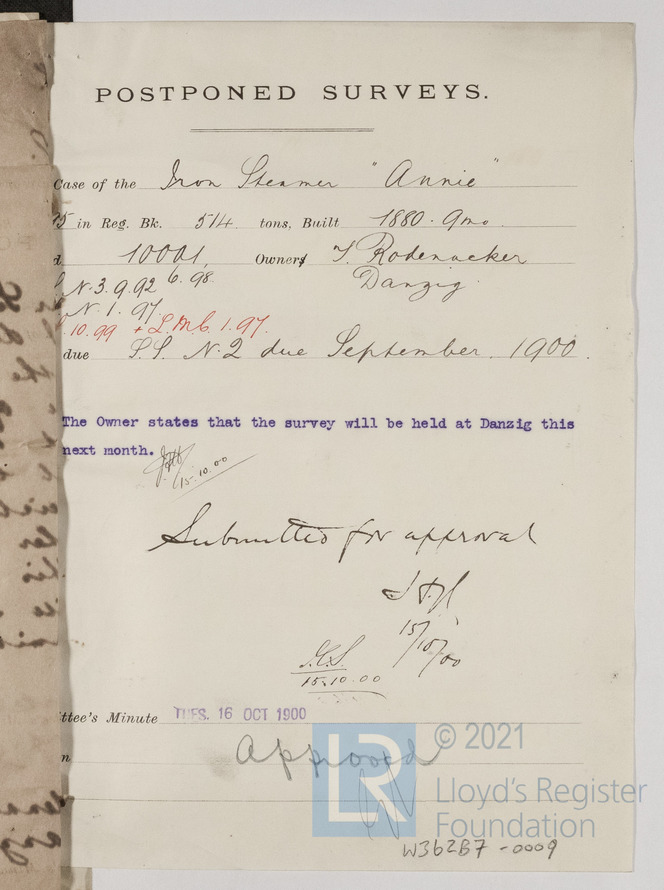 POSTPONED SURVEYS.
Case of the Iron Steamer "Annie"
5 in Reg. Bk. 514 tons, Built 1880. 9mo.
d 100A1, Owners J. Rodenacker
N. 3. 9.92 6.98 Danzig.
N 1. 97.
.10.99 + L.M.C. 1.97.
due S.S. No. 2 due September. 1900.
The Owner states that the survey will be held at Danzig this
next month.
15.10.00
Submitted for approval
15/10/00
15.10.00
ttee's Minute TUES. 16 OCT 1900
n Approved
© 2021
LR
Lloyd's Register
Foundation
W362B7-0009